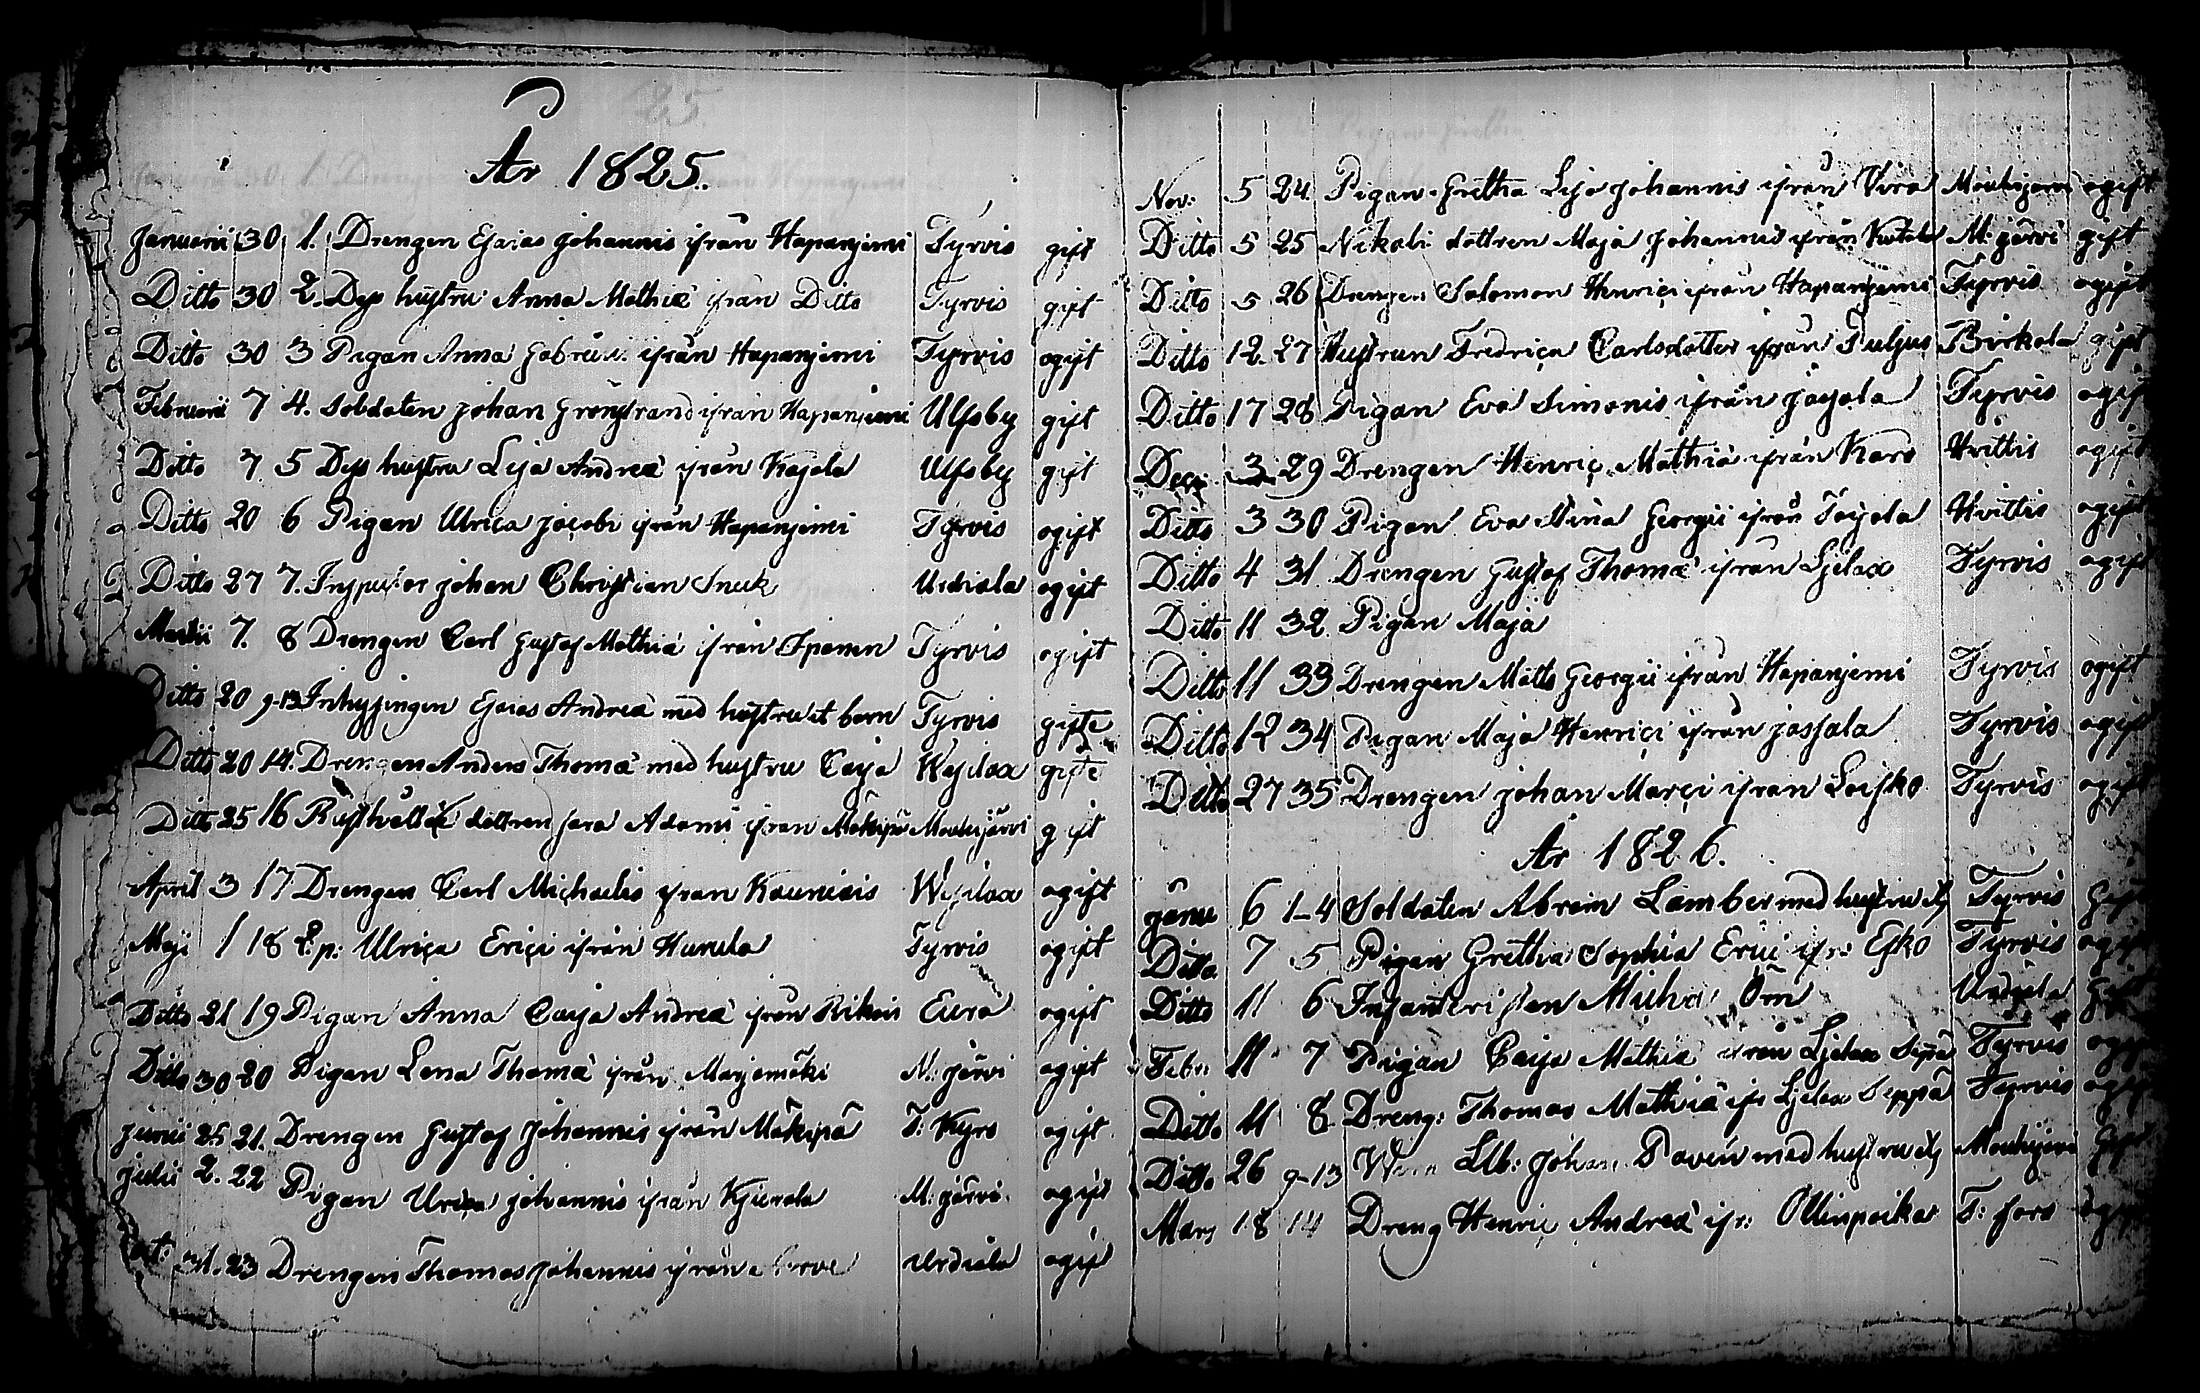 År 1825.
Januarii 30 1. Drengen Esaias Johannis ifrån Hapanjemi Tyrvis gift
Ditto 30 2. Dess hustru Anna Mathiæ ifrån Ditto Tyrvis gift
Ditto 30 3 Pigan Anna ifrån Hapanjemi Tyrvis ogift
Februarii 7 4. Soldaten Johan Grönstrand ifrån Hapanjemi Ulfsby gift
Ditto 7 5 Dess hustru Lisa Andreæ ifrån Kajala Ulfsby gift
Ditto 20 6 Pigan Ulrica Jacobi ifrån Hapanjemi Tyrvis ogift
Ditto 27 7. Inspector Johan Christian Urdiala ogift
Martii 7. 8 Drengen Carl Gustaf Mathiæ ifrån Tyrvis ogift
Ditto 20 9-13 Inhysingen Esaias Andreæ med hustru et barn Tyrvis gifte
Ditto 20 14. Drengen Anders Thomæ med hustru Caisa Wesilax gifte
Ditto 25 16 dottren Sara Adami ifrån Mäkipä Mouhijärvi gift
April 3 17 Drengen Carl Michaelis ifrån Kauniais Wesilax ogift
Maji 1 18 E.p: Ulrica Erici ifrån Tyrvis ogift
Ditto 21 19 Pigan Anna Caisa Andreæ ifrån Eura ogift
Ditto 30 20 Pigan Lena Thomæ ifrån Marjamäki M: järvi ogift
Junii 25 21. Drengen Gustaf Johannis ifrån Mäkipä T: Kyro ogift
Julii 2. 22 Pigan Johannis ifrån M: järvi ogift
31. 23 Drengen Thomas Johannis ifrån Urdiala ogift
Nov: 5 24. Pigan Gretha Lisa Johannis ifrån Mouhijärvi ogift
Ditto 5 25 dottren Maja Johannis ifrån M: järvi gift
Ditto 5 26 Drengen Salomon Henrici ifrån Hapanjemi Tyrvis ogift
Ditto 12. 27 Hustrun Fredrica Carlsdotter ifrån Birkala gift
Ditto 17 28 Pigan Eva Simonis ifrån Tyrvis ogift
Dec: 3 29 Drengen Henric Mathiæ ifrån Karo Hvittis ogift
Ditto 3 30 Pigan Eva Stina Georgii ifrån Hvittis ogift
Ditto 4 31 Drengen Gustaf Thomæ ifrån Liselax Tyrvis ogift
Ditto 11 32. Pigan Maja
Ditto 11 33 Drengen Matts Georgii ifrån Hapanjemi Tyrvis ogift
Ditto 12 34 Pigan Maja Henrici ifrån Tyrvis ogift
Ditto 27 35 Drengen Johan Marci ifrån Tyrvis ogift
År 1826.
Janu 6 1-4 Soldaten Abram Lamber med hustru Tyrvis
Ditto 7 5 Pigan Gretha Sophia Erici ifr: Esko Tyrvis
Ditto 11 6 Infanteristen Örn Urdiala
Febr: 11 7 Pigan Caisa Mathiæ ifrån Tyrvis
Ditto 11 8 Dreng: Thomas Mathiæ ifr Seppä Tyrvis
Ditto 26 9-13 Johan med hustru
Mars 18 14 Dreng Henric Andreæ ifr: Ollinpoika T: fors